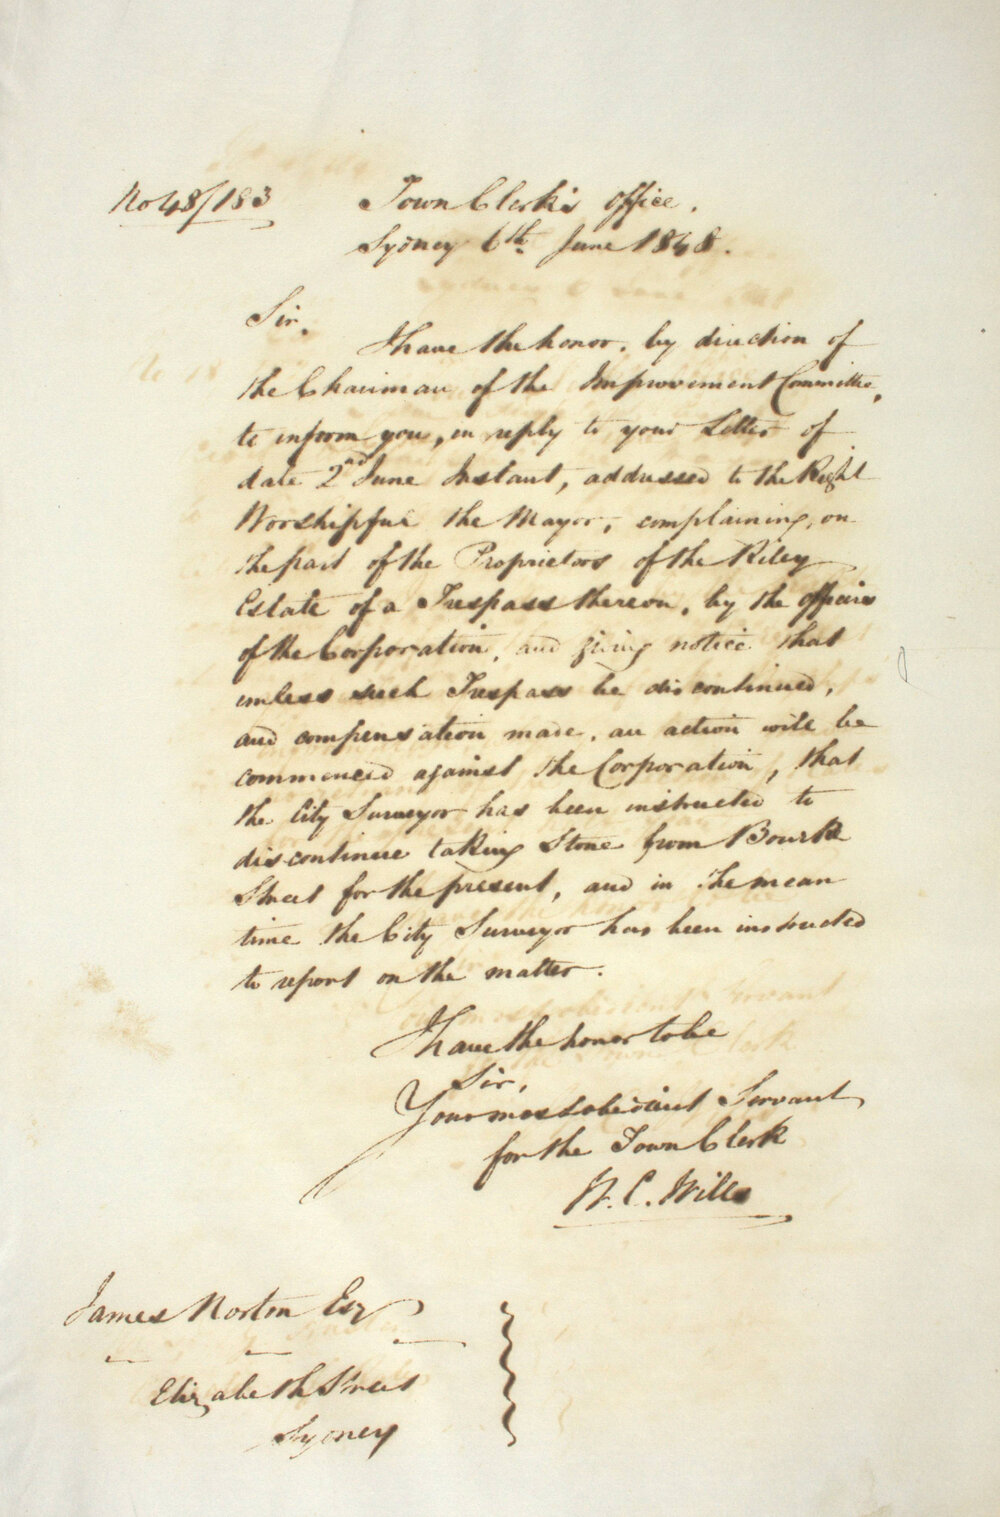 No 48/183
Town Clerk's Office.
Sydney 6th June 1848.
Sir,
I have the honor, by direction of
the Chairman of the Improvement Committee,
to inform you, in reply to your Letter of
date 2nd June Instant, addressed to the Right
Worshipful the Mayor, complaining, on
the part of the Proprietors of the Riley
Estate of a Trespass thereon, by the officers
of the Corporation, and giving notice that
unless such Trespass be discontinued,
and compensation made, an action will be
commenced against the Corporation, that
the City Surveyor has been instructed to
discontinue taking Stone from Bourke
Street for the present, and in the mean
time the City Surveyor has been instructed
to report on the matter.
I have the honor to be
Sir,
Your most obedient Servant
for the Town Clerk
W. C. Wills
James Norton Esq
Elizabeth Street
Sydney